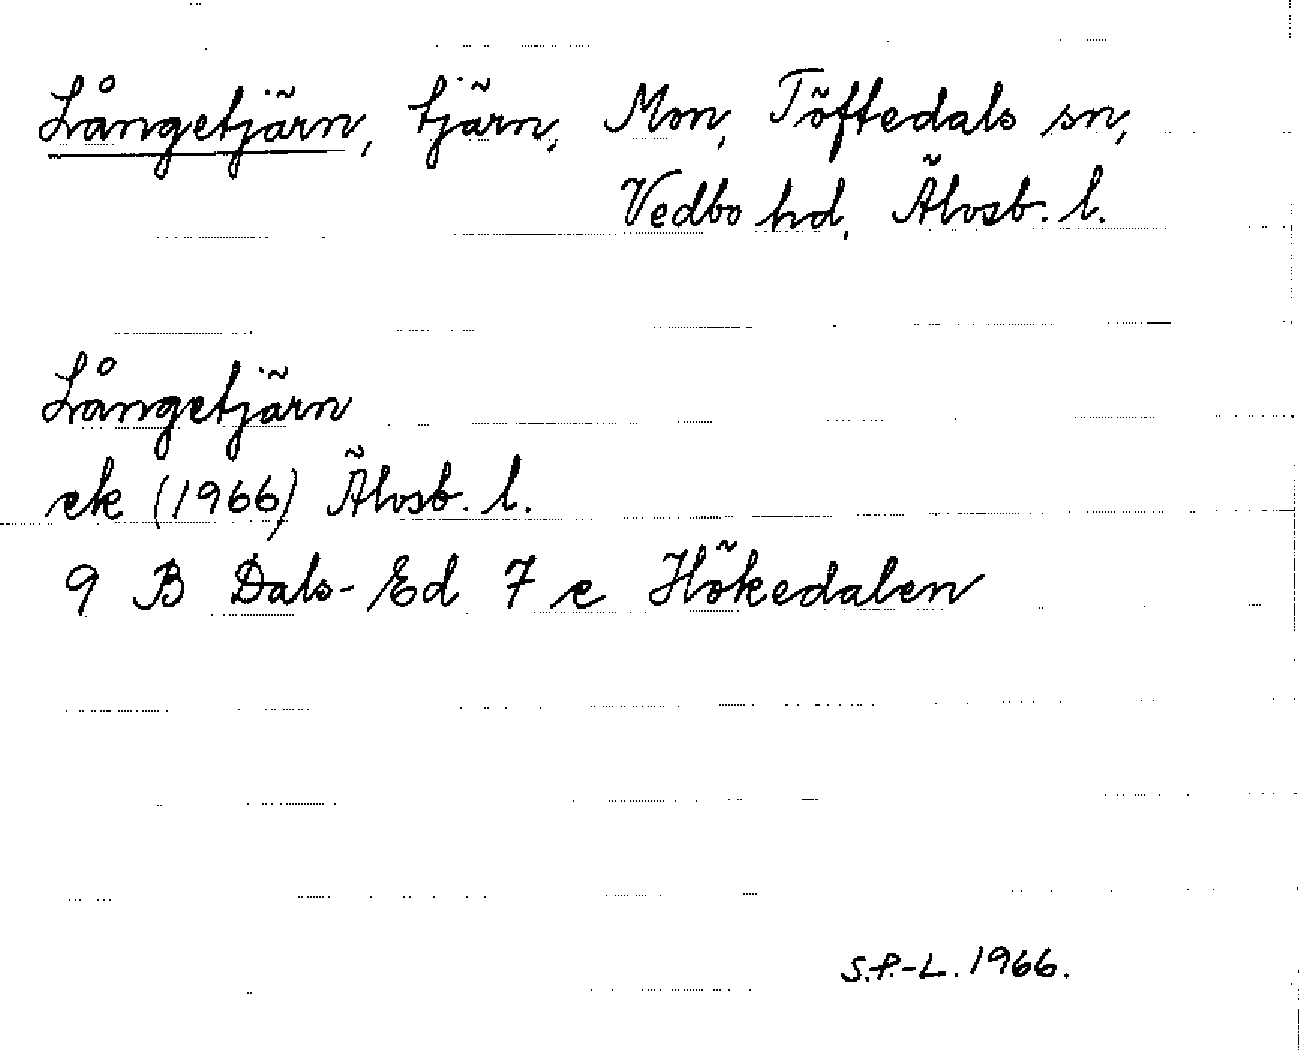 Långetjärn, tjärn, Mon, Töftedals sn,
Vedbo hd, Älvsb. l.
Långetjärn
ek (1966) Älvsb. l.
9 B Dals-Ed 7 e Hökedalen
S.P.-L. 1966.